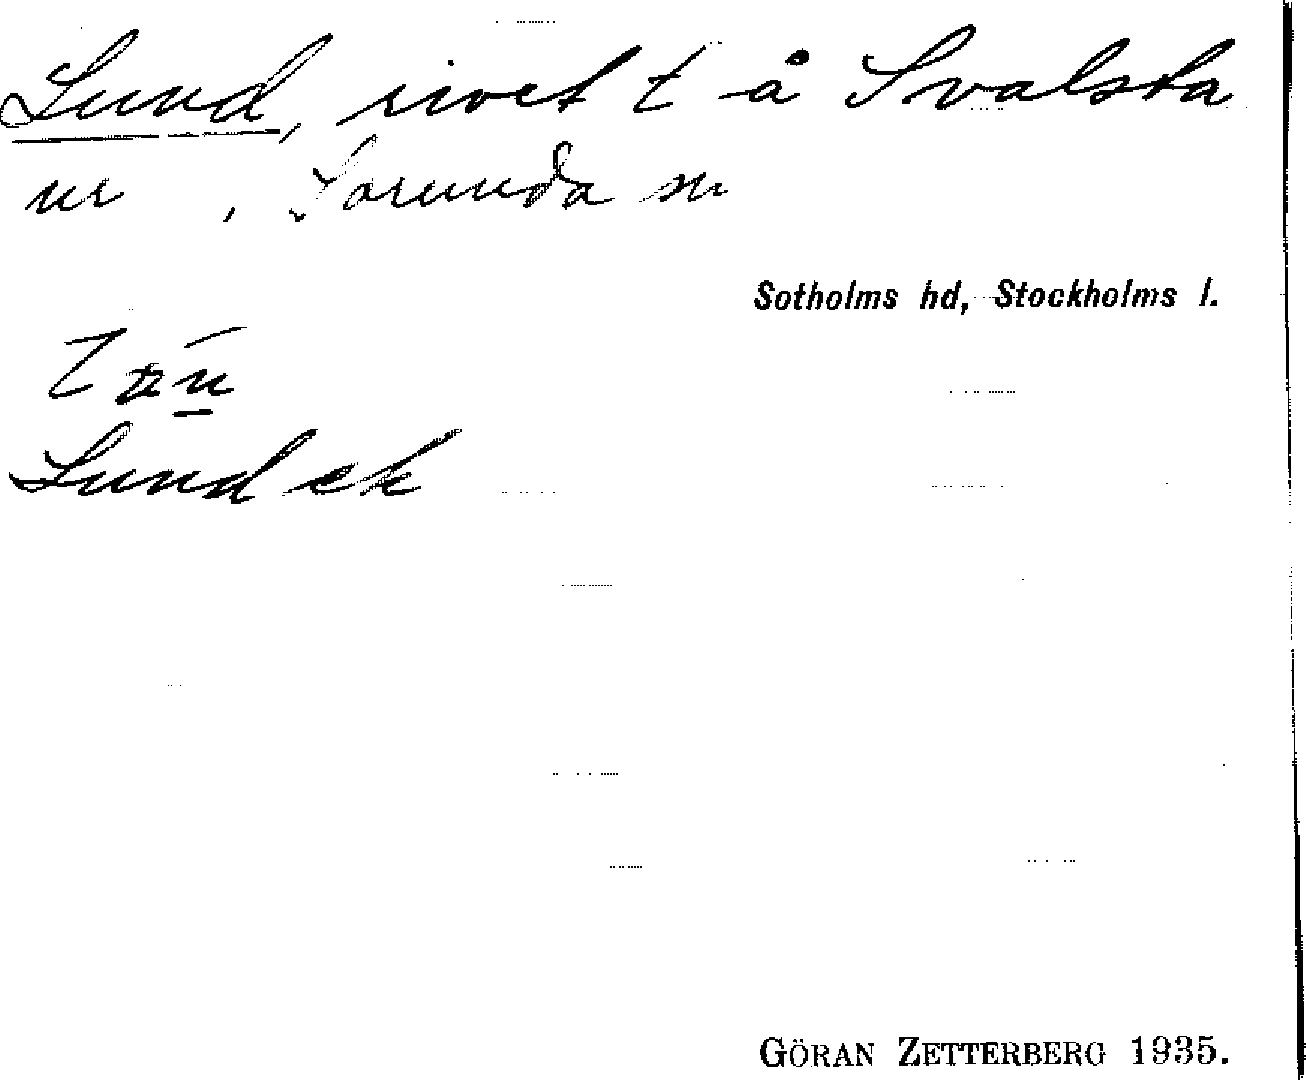 Lund, rivet t å Svalsta
nr , Sorunda sn
Sotholms hd, Stockholms l.
Lund ek
GÖRAN ZETTERBERG 1935.